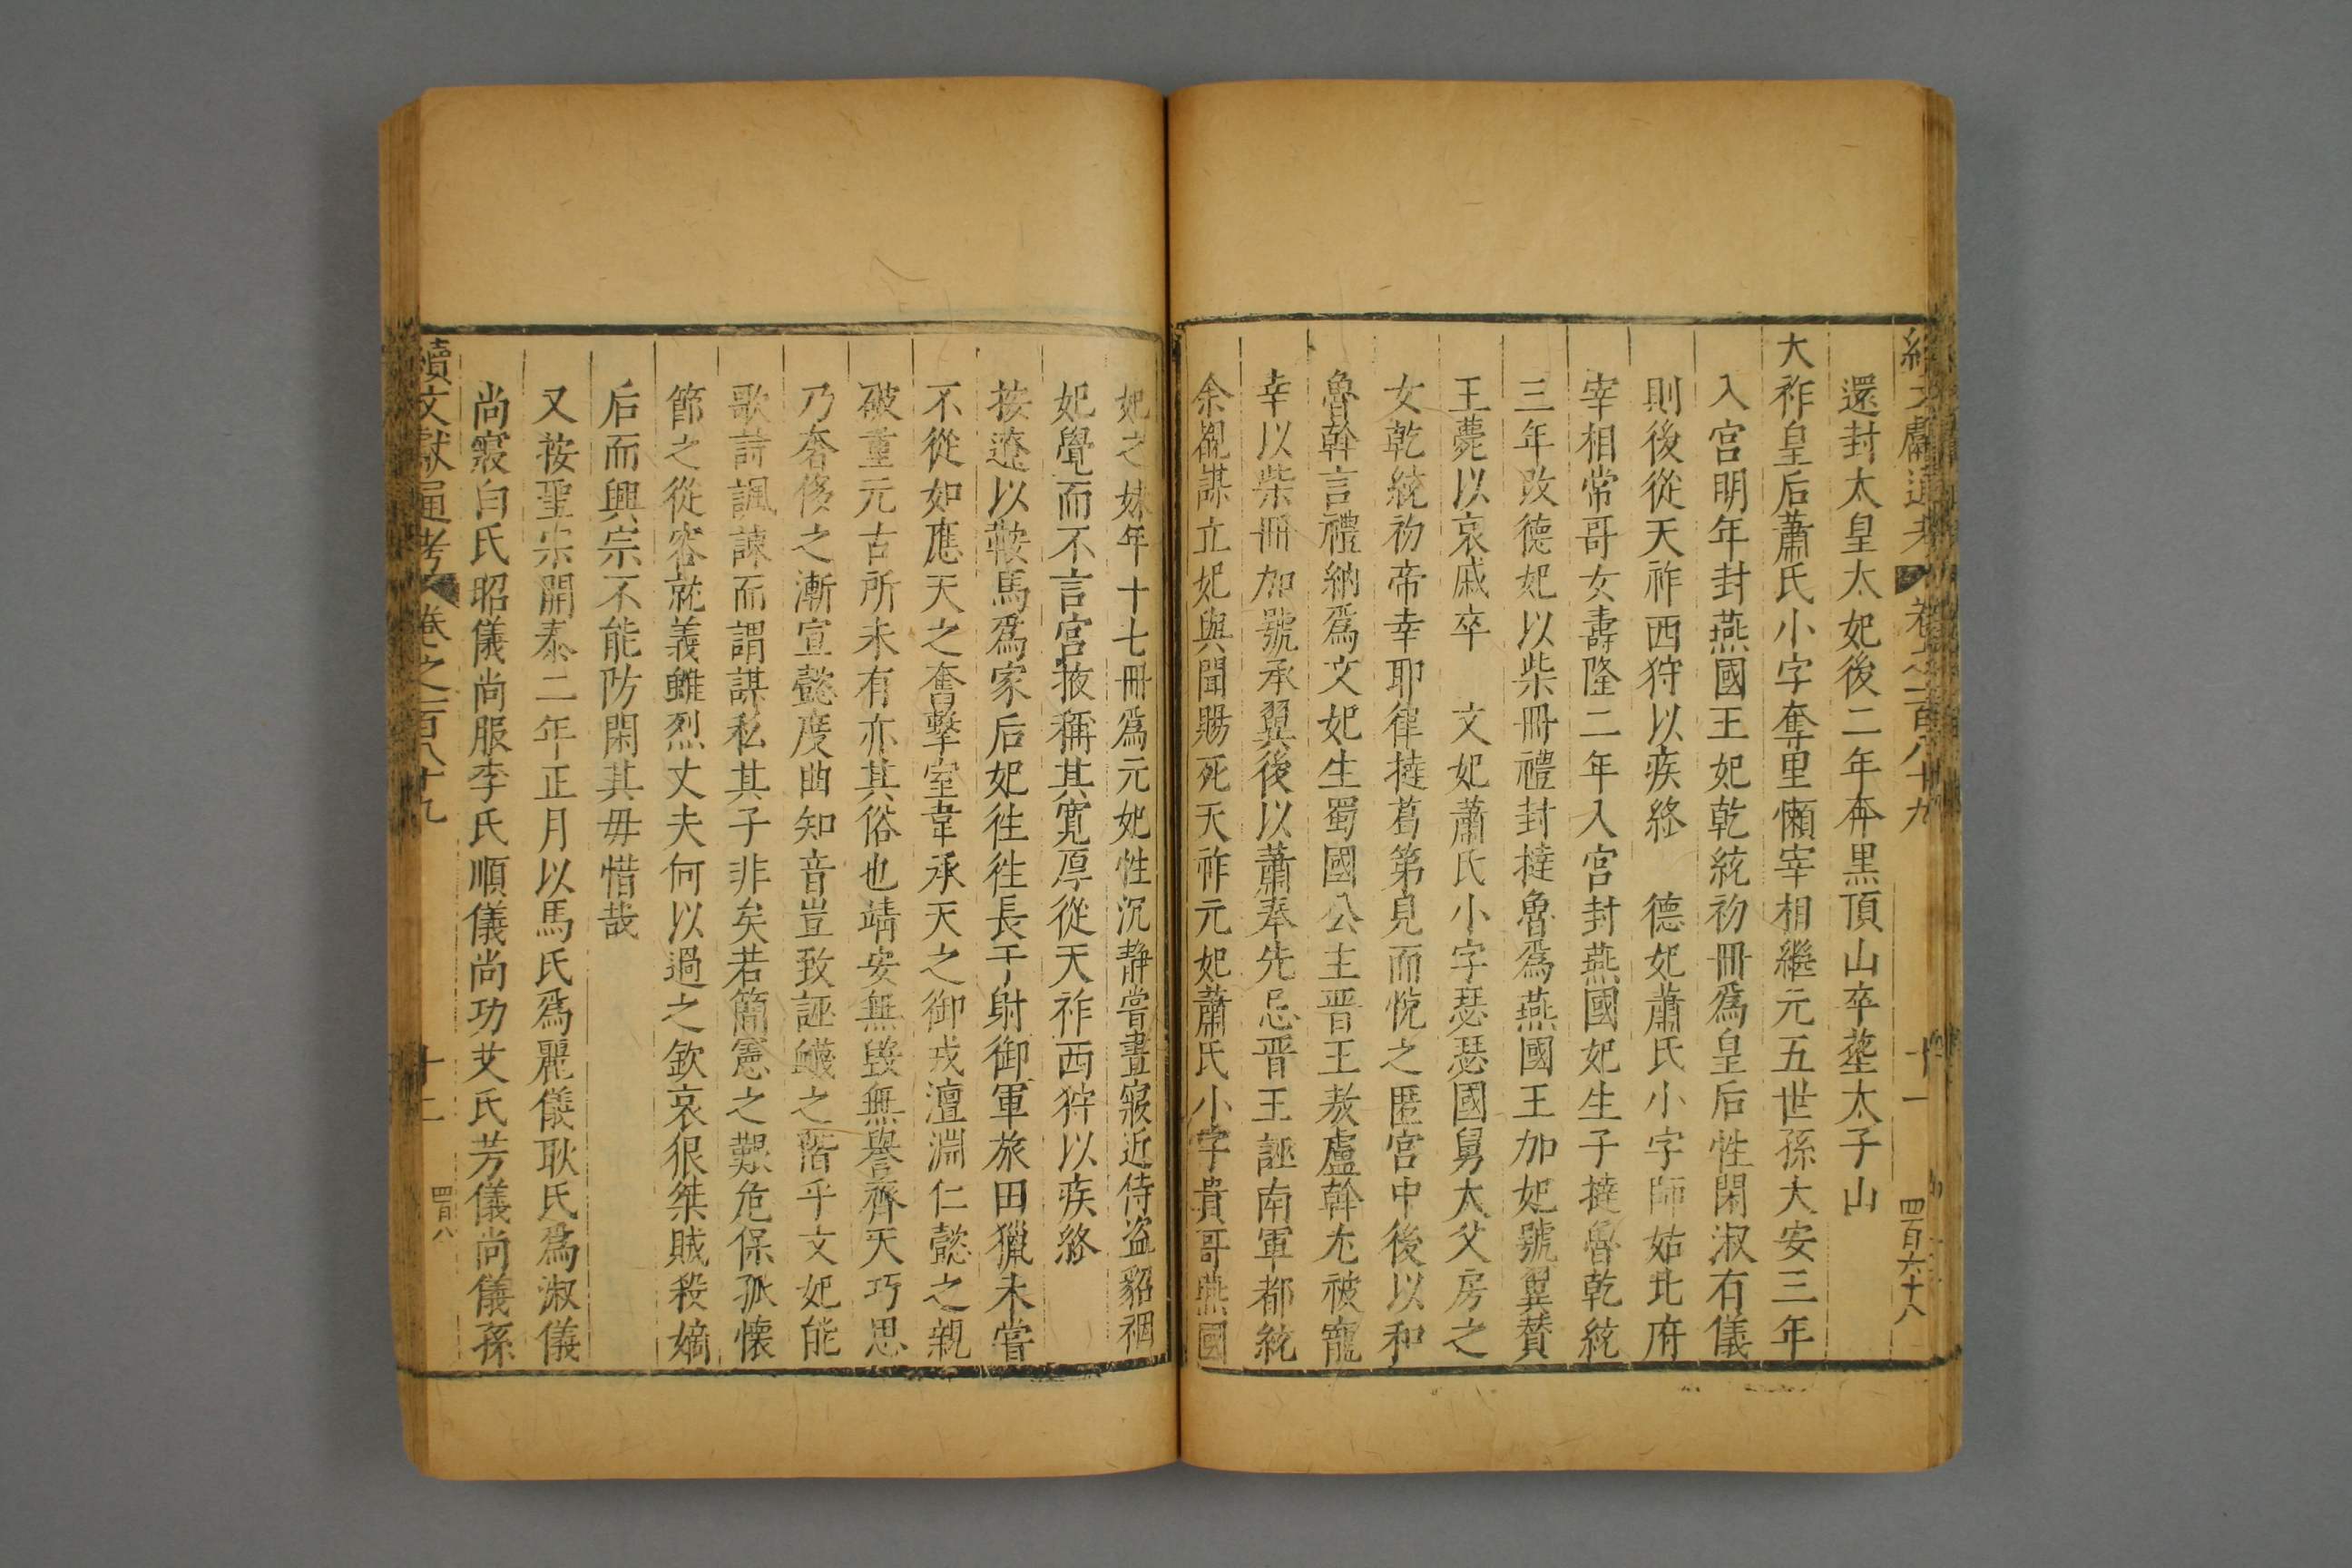 續文獻通考 卷之一百八十九 十一 四百六十八
還封太皇太妃後二年奔黑頂山卒塟太子山
天祚皇后蕭氏小字奪里懶宰相繼元五世孫大安三年
入宮明年封燕國王妃乾統初冊爲皇后性閑淑有儀
則後從天祚西狩以疾終 德妃蕭氏小字師姑北府
宰相常哥女壽隆二年入宮封燕國妃生子撻魯乾統
三年改德妃以柴冊禮封撻魯爲燕國王加妃號翼贊
王薨以哀戚卒 文妃蕭氏小字瑟瑟國舅大父房之
女乾統初帝幸耶律撻葛第見而悅之匿宮中後以和
魯斡言禮納爲文妃生蜀國公主晋王敖盧斡尤被寵
幸以柴冊加號承翼後以蕭奉先忌晋王誣南軍都統
余覩謀立妃與聞賜死天祚元妃蕭氏小字貴哥燕國
妃之妹年十七冊爲元妃性沉靜嘗晝寢近侍盜貂裀
妃覺而不言宮掖稱其寬厚從天祚西狩以疾終
按遼以鞍馬爲家后妃徃徃長于射御軍旅田獵未嘗
不從如應天之奮擊室韋承天之御戎澶淵仁懿之親
破重元古所未有亦其俗也靖安無毀無譽齊天巧思
乃奢侈之漸宣懿度曲知音豈致誣衊之階乎文妃能
歌詩諷諫而謂謀私其子非矣若簡憲之艱危保孤懷
節之從容就義雖烈丈夫何以過之欽哀狠桀賊殺嫡
后而興宗不能防閑其毋惜哉
又按聖宗開泰二年正月以馬氏爲麗儀耿氏爲淑儀
尚寢白氏昭儀尚服李氏順儀尚功艾氏芳儀尚儀孫
續文獻通考 卷之一百八十九 十二 四百八